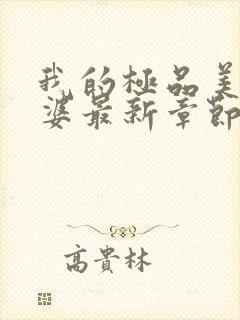 我的極品美
婆最新章節
高貴林